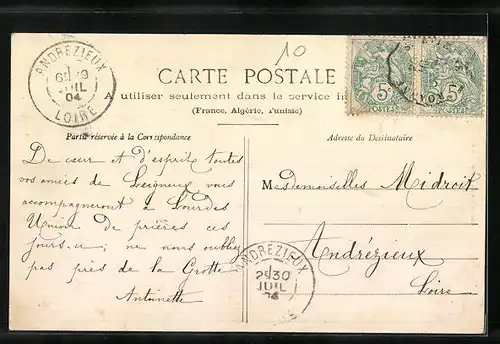 10
ANDREZIEUX
JUIL
04
LOIRE
CARTE POSTALE
A utiliser seulement dans le service
(France, Algérie, Tunisie)
5c 5c
POSTES
Partie réservée à la Correspondance
Adresse du Destinataire
De cœur et d'esprit toutes
vos amies de Leigneux vous
accompagneront à Lourdes
Union de prières ces
jours-ci; ne nous oubliez
pas près de la Grotte
Antoinette
Mesdemoiselles Midroit
Andrézieux
Loire
ANDREZIEUX
2E30
JUIL
04